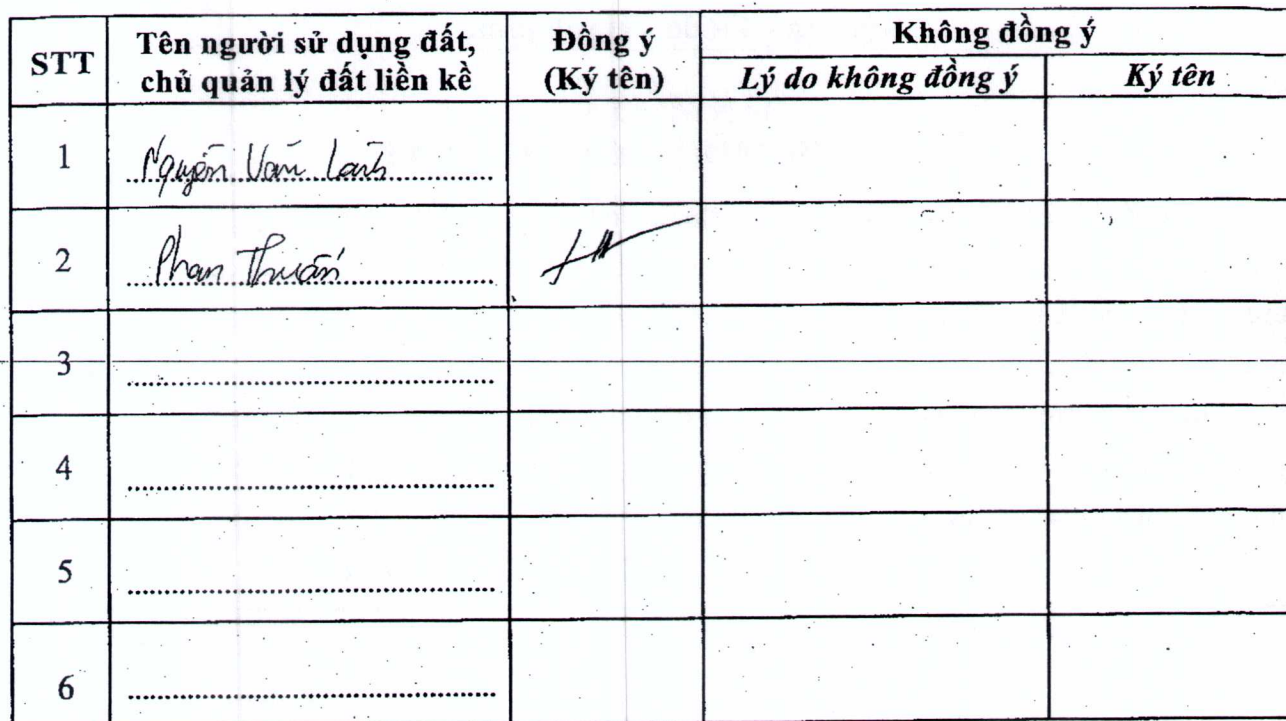 STT
Tên người sử dụng đất,
chủ quản lý đất liền kề
Đồng ý
(Ký tên)
Không đồng ý
Lý do không đồng ý
Ký tên
1
Nguyễn Văn
2
Phan Thuấn
3
4
5
6